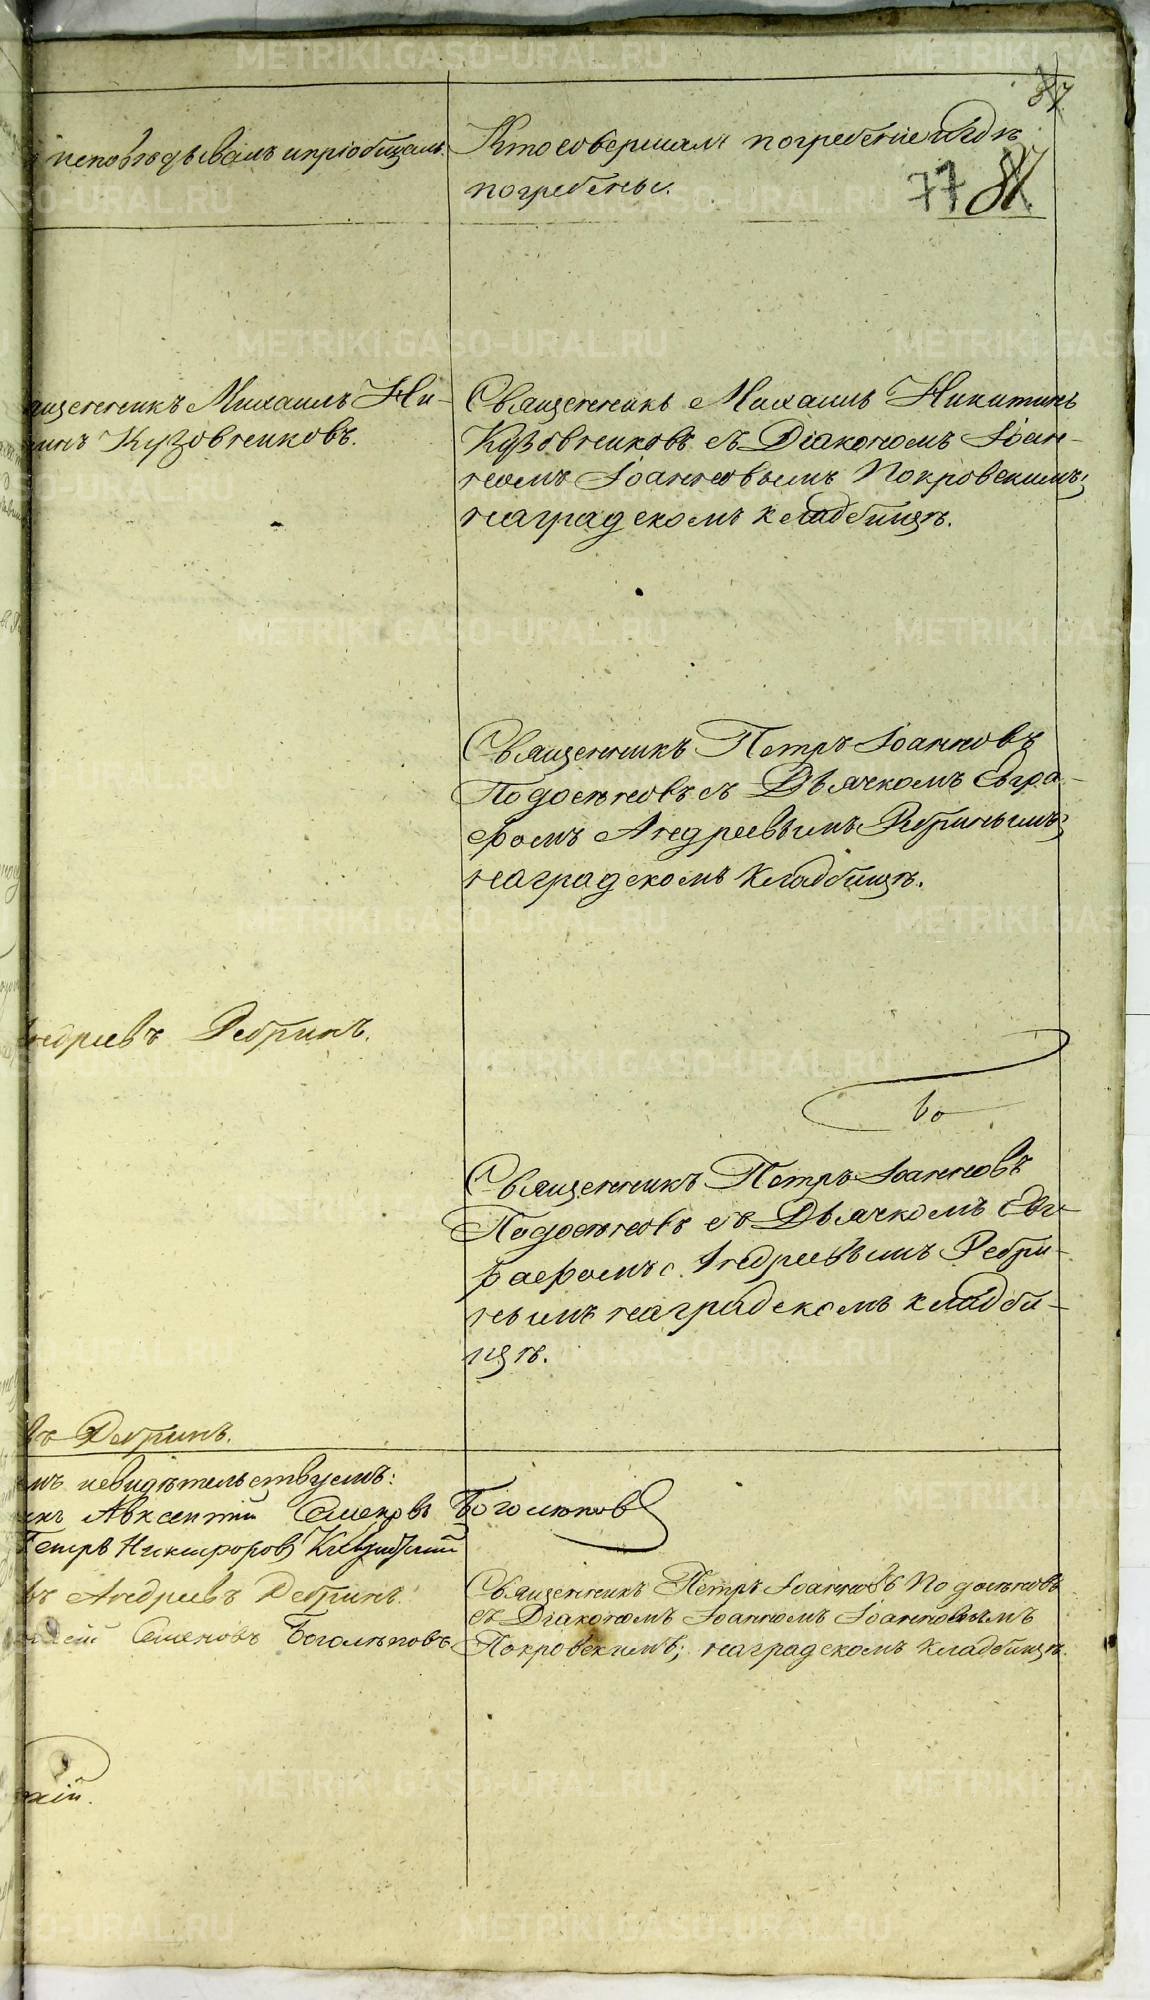 исповѣдывалъ и пріобщалъ.
Кто совершалъ погребеніе и гдѣ
погребены.
77
Священникъ Михаилъ Ни-
Кузовниковъ.
Священникъ Михаилъ Никитинъ
Кузовниковъ съ Діакономъ Іоан-
номъ Іоанновымъ Покровскимъ;
на градскомъ кладбищѣ.
Священникъ Петръ Іоанновъ
Подосеновъ съ Дьячкомъ Евгра-
фомъ Андреевымъ Ребринымъ;
на градскомъ кладбищѣ.
Андреевъ Ребринъ.
Священникъ Петръ Іоанновъ
Подосеновъ съ Дьячкомъ Евг-
рафомъ Андреевымъ Ребри-
нымъ на градскомъ кладби-
щѣ.
въ Ребринъ.
свидѣтельствуемъ:
Авксентій Семеновъ Боголѣповъ
Петръ Никифоровъ
въ Андреевъ Ребринъ.
Семеновъ Боголѣповъ
Священникъ Петръ Іоанновъ Подосеновъ
съ Діакономъ Іоанномъ Іоанновымъ
Покровскимъ; на градскомъ кладбищѣ.
METRIKI.GASO-URAL.RU